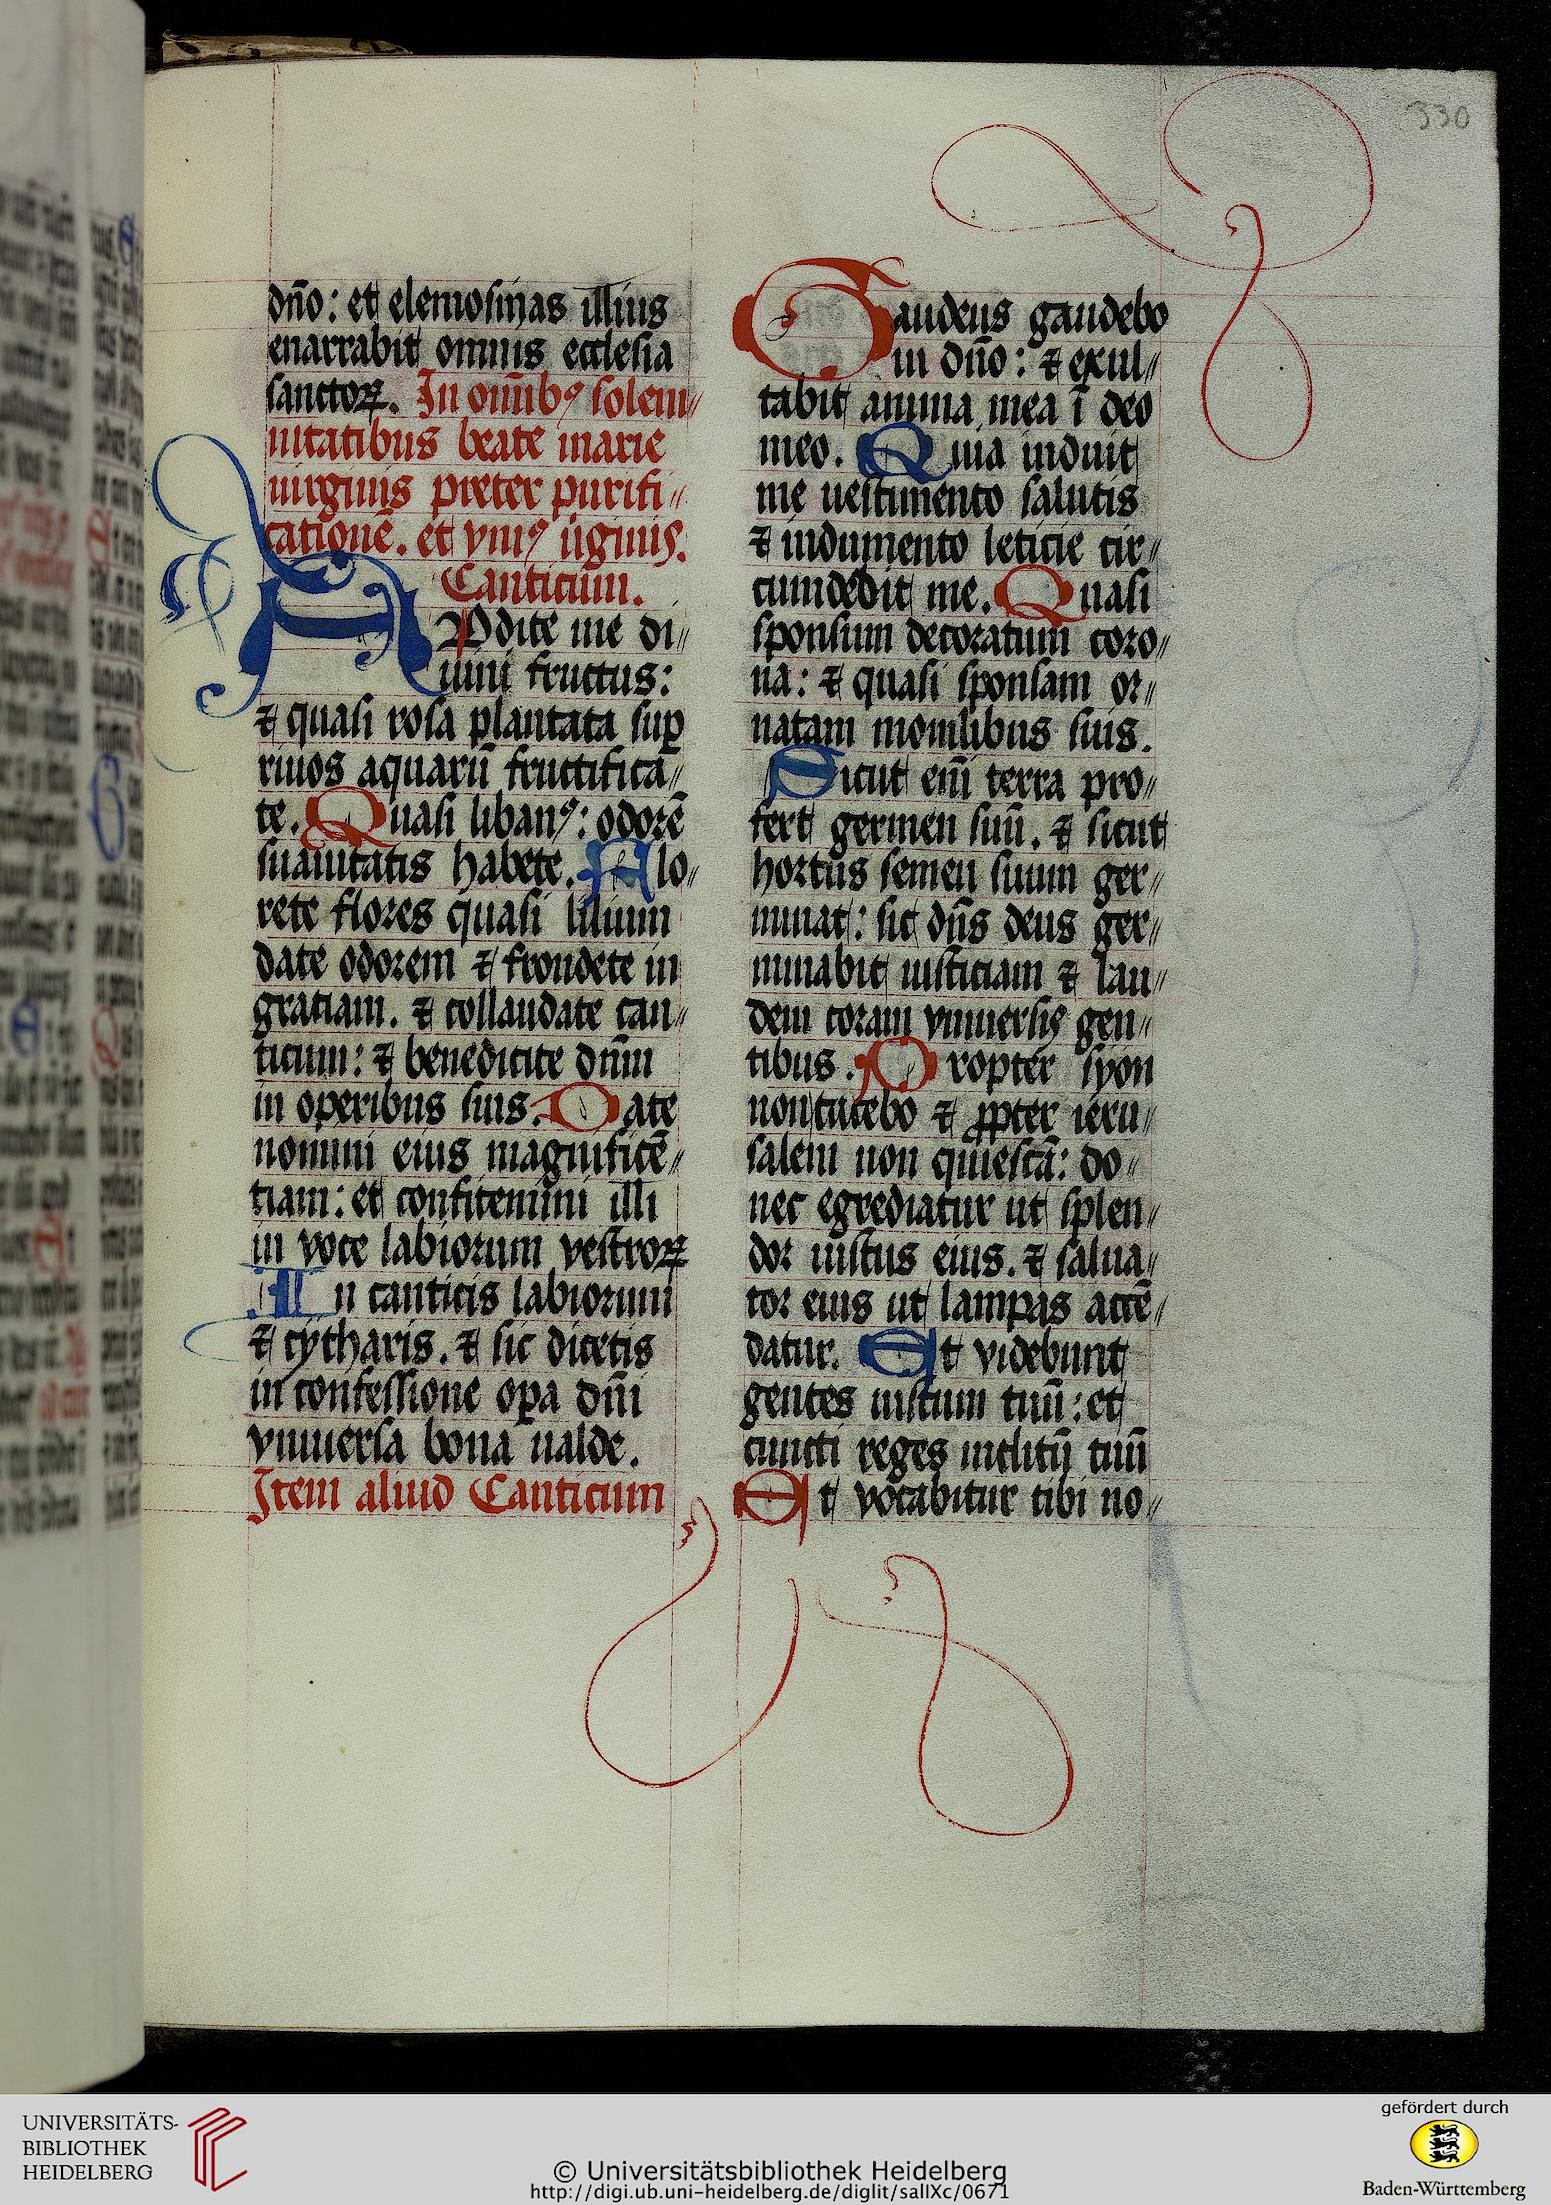 330
dño: et elemosinas illius
enarrabit omnis ecclesia
sanctoꝝ. In om̃ibꝰ solem⸗
nitatibus beate marie
uirginis preter purifi⸗
cationē. et vniꝰ ũginis.
Canticum.
AVdite me di⸗
uini fructus:
⁊ quasi rosa plantata suꝑ
riuos aquarū fructifica⸗
te. Quasi libanꝰ: odorē
suauitatis habete. Flo⸗
rete flores quasi lilium
date odorem ⁊ frondete in
gratiam. ⁊ collaudate can⸗
ticum: ⁊ benedicite dñm
in operibus suis. Date
nomini eius magnificē⸗
tiam: et confitemini illi
in voce labiorum vestroꝝ
In canticis labiorum
⁊ cytharis. ⁊ sic dicetis
in confessione oꝑa dñi
vniuersa bona ualde.
Item aliud Canticum
Gaudens gaudebo
in dño: ⁊ exul⸗
tabit anima mea ī deo
meo. Quia induit
me uestimento salutis
⁊ indumento leticie cir⸗
cumdedit me. Quasi
sponsum decoratum coro⸗
na: ⁊ quasi sponsam or⸗
natam monilibus suis.
Sicut em̃ terra pro⸗
fert germen suū. ⁊ sicut
hortus semen suum ger⸗
minat: sic dñs deus ger⸗
minabit iusticiam ⁊ lau⸗
dem coram vniuersis gen⸗
tibus. Propter syon
non tacebo ⁊ ꝓpter ieru⸗
salem non quiescā: do⸗
nec egrediatur ut splen⸗
dor iustus eius. ⁊ salua⸗
tor eius ut lampas accē⸗
datur. Et videbunt
gentes iustum tuū: et
cuncti reges inclitū tuū
Et vocabitur tibi no⸗
UNIVERSITÄTS-
BIBLIOTHEK
HEIDELBERG
© Universitätsbibliothek Heidelberg
http://digi.ub.uni-heidelberg.de/diglit/salIXc/0671
gefördert durch
Baden-Württemberg